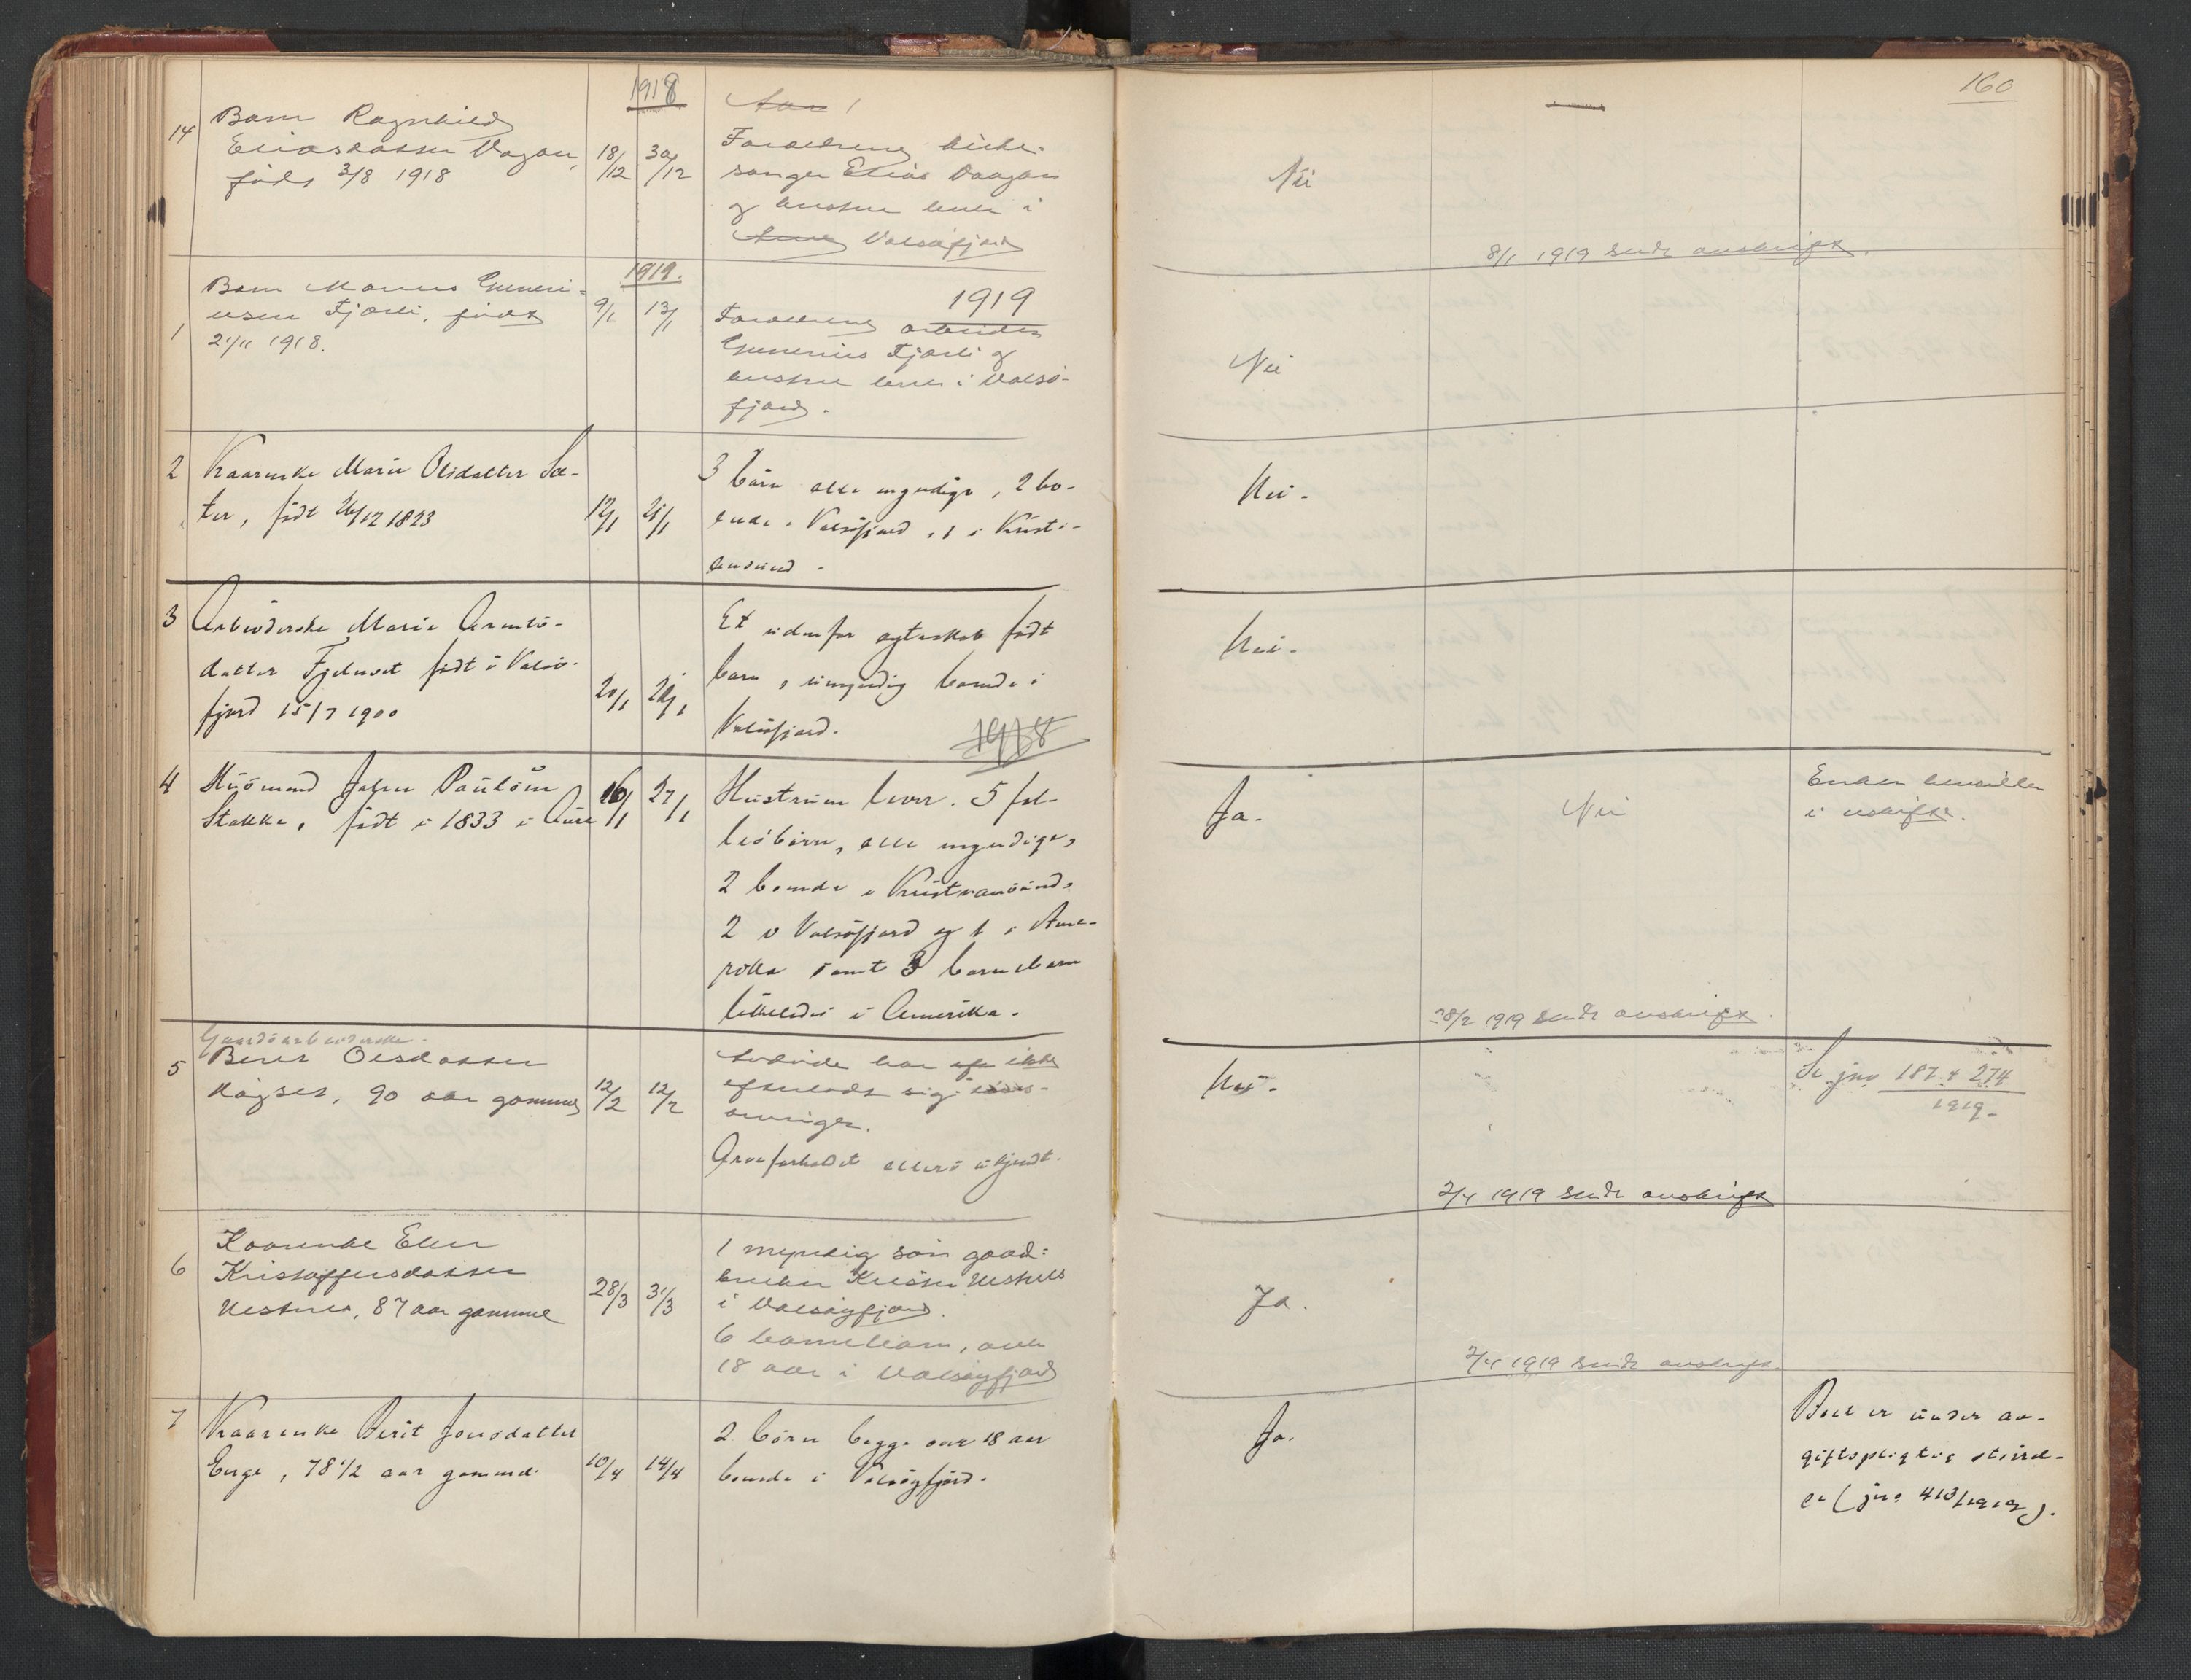 160
1918
14
Barn Ragnhild
Eliasdatter Vaagan,
født 3/8 1918
18/12
30/12
Forældrene kirke-
sanger Elias Vaagan
og hustru lever i
Valsøfjord
Nei
8/1 1919 sendt avskrift.
1919.
1919
1
Barn Marius Guneri-
usen Fjærli, født
21/11 1918.
9/1
13/1
Forældrene arbeider
Gunerius Fjærli og
hustru lever i Valsø-
fjord.
Nei
2
Kaarenke Marie Olsdatter Sæ-
ter, født 26/12 1823
12/1
21/1
3 børn alle myndige, 2 bo-
ende i Valsøfjord, 1 i Kristi-
ansund.
Nei.
3
Arbeiderske Marie Arnts-
datter Fjelnset født i Valsø-
fjord 15/7 1900
20/1
Et udenfor egteskab født
barn, umyndig boende i
Valsøfjord.
1918
Nei.
4
Husmand Johan Paulsen
Stakka, født i 1833 i Aure
16/1
27/1
Hustruen lever. 5 fæl-
lesbørn, alle myndige,
2 boende i Kristiansund,
2 i Valsøfjord og 1 i Ame-
rika samt 3 barnebarn
ligeledes i Amerika.
Ja.
Nei
Enken hensidder
i uskifte.
28/2 1919 sendt avskrift.
5
Gaardsarbeiderske
Berit Olsdatter
Høgset, 90 aar gammel
12/2
12/2
Avdøde har ikke
efterladt sig livs-
arvinger.
Arveforholdet ellers ukjendt.
Nei.
Se jnr 187 & 274
1919.
2/4 1919 sendt avskrift
6
Kaarenke Elen
Kristoffersdatter
Nestnes, 87 aar gammel
28/3
31/3
1 myndig søn gaard-
bruker Krister Nestnes
i Valsøyfjord.
6 barnebarn, over
18 aar i Valsøyfjord
Ja.
2/4 1919 sendt avskrift.
7
Kaarenke Berit Jonsdatter
Enge, 78 1/2 aar gammel.
10/4
14/4
2 børn begge over 18 aar
boende i Valsøyfjord.
Ja.
Boet er under av-
giftspligtig størrel-
se (jnr. 413/1919).